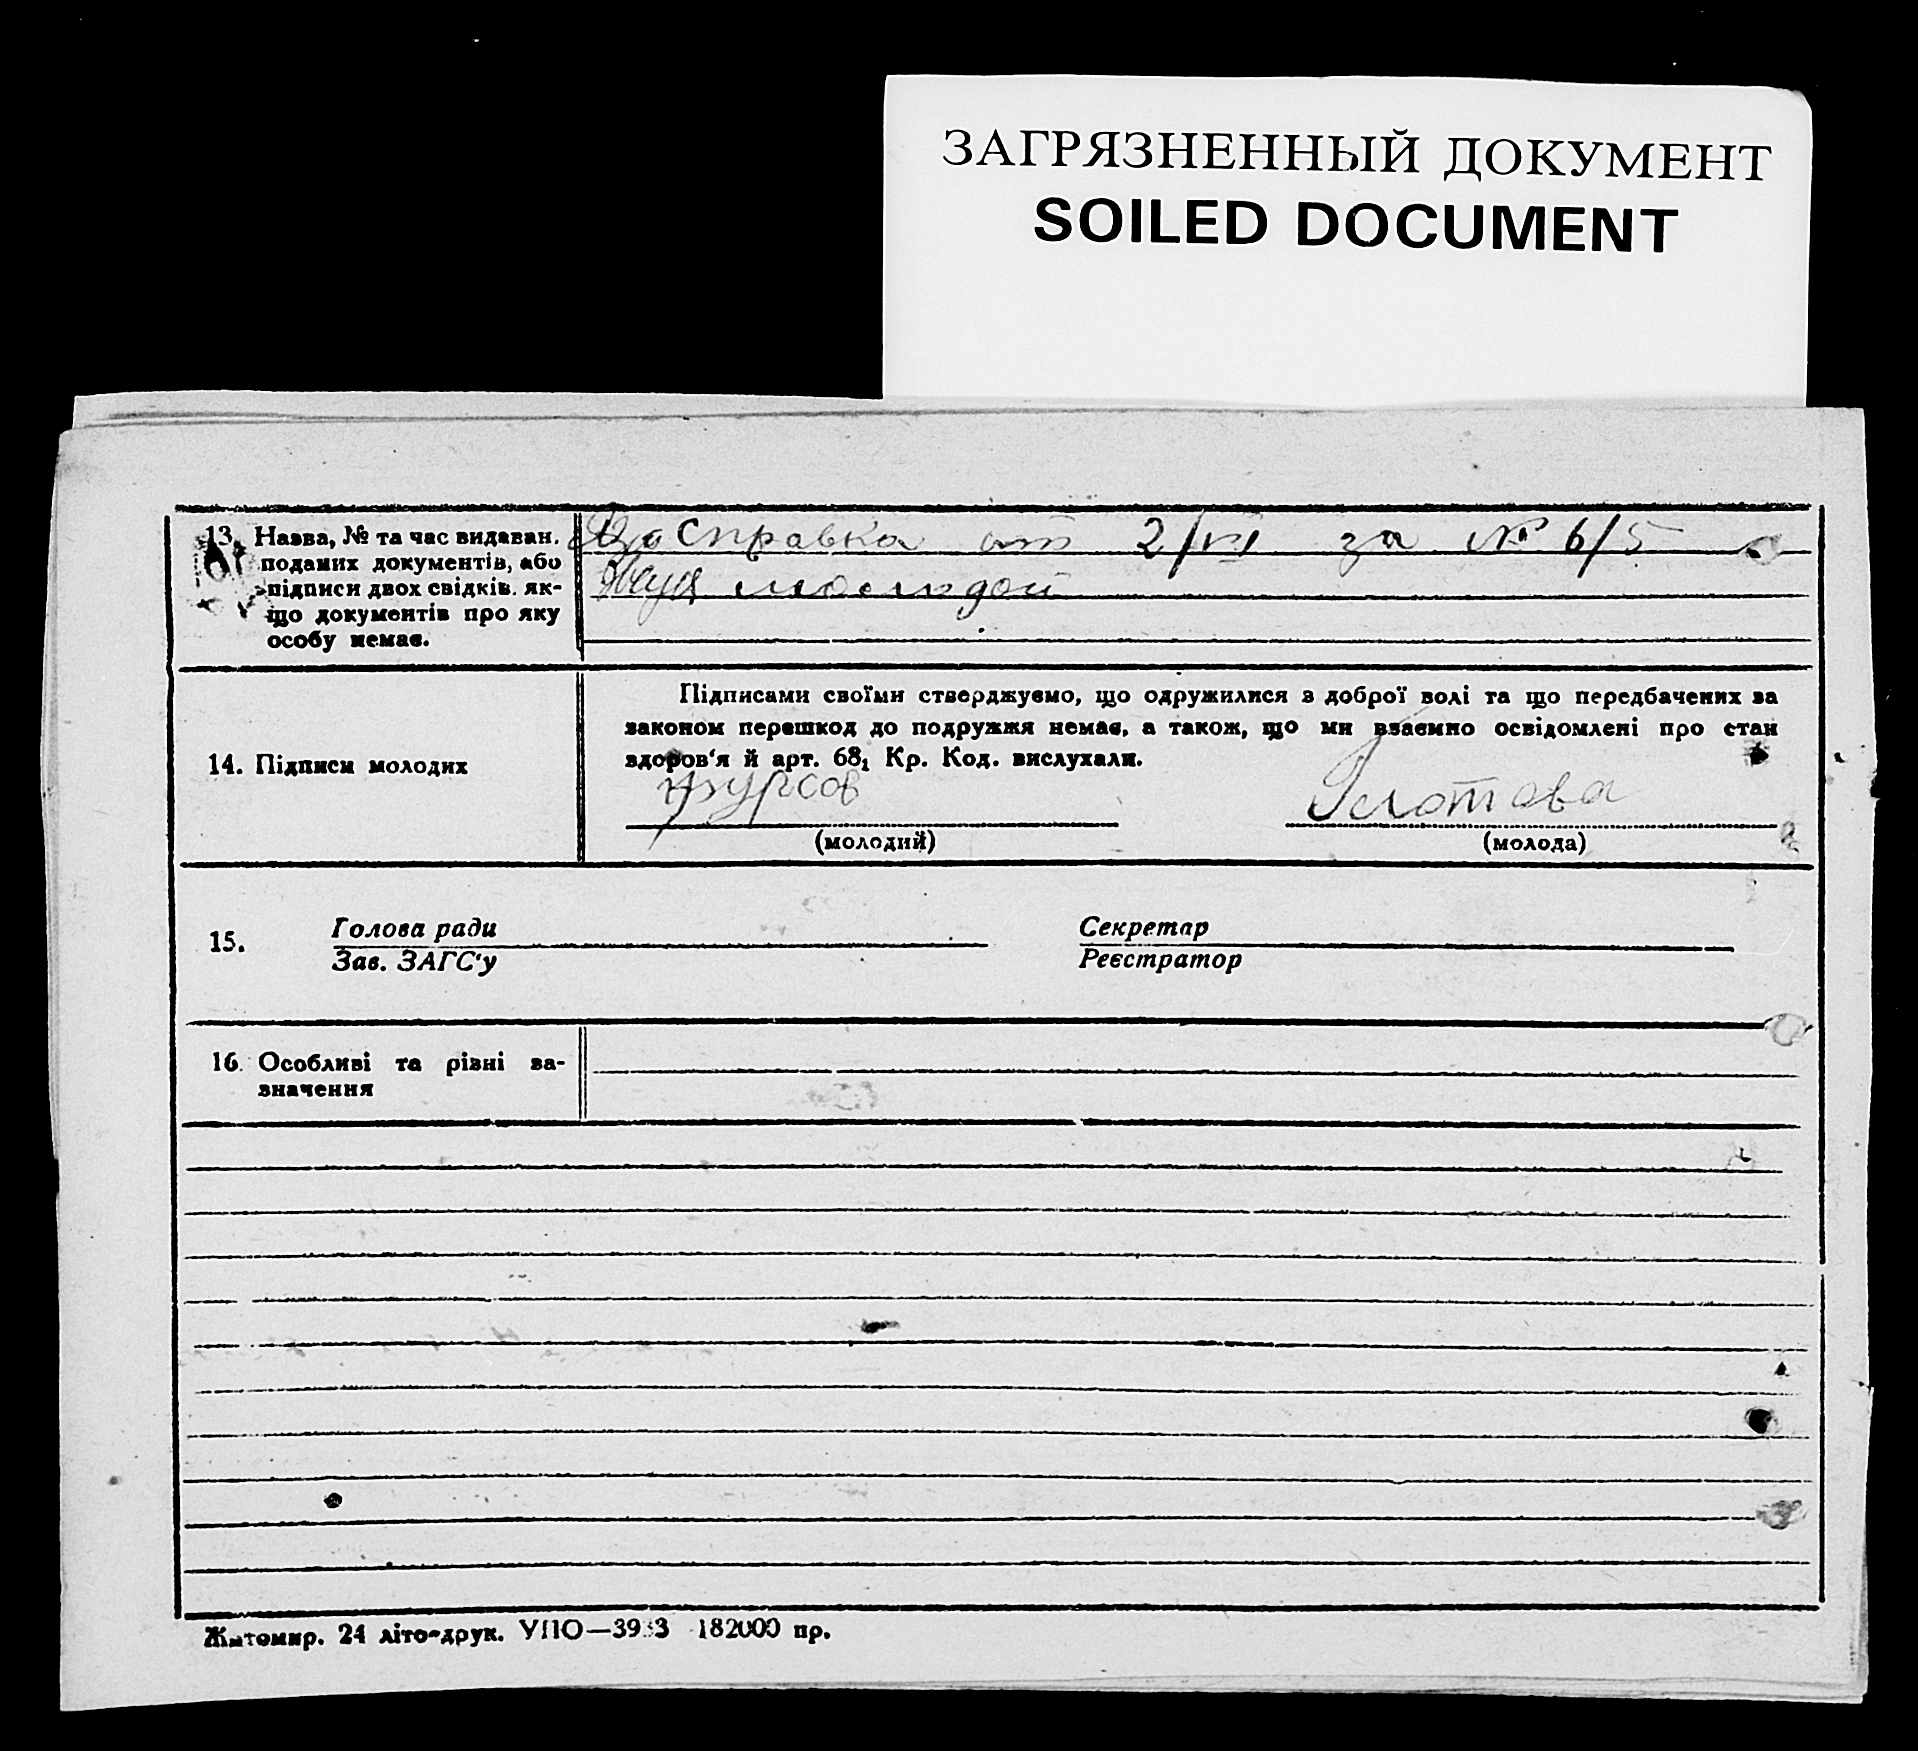 ЗАГРЯЗНЕННЫЙ ДОКУМЕНТ
SOILED DOCUMENT
13. Назва, № та час видаван.
поданих документів, або
підписи двох свідків. як-
що документів про яку
особу немає.
Справка от 2/VII за № 6/5
14. Підписи молодих
Підписами своїми стверджуємо, що одружилися з доброї волі та що передбачених за
законом перешкод до подружжя немає, а також, що ми взаємно освідомлені про стан
здоров'я й арт. 68₁ Кр. Код. вислухали.
Фурсов
(молодий)
(молода)
15.
Голова ради
Зав. ЗАГС'у
Секретар
Реєстратор
16. Особливі та рівні за-
значення
Житомир. 24 літо-друк. УПО— 182000 пр.